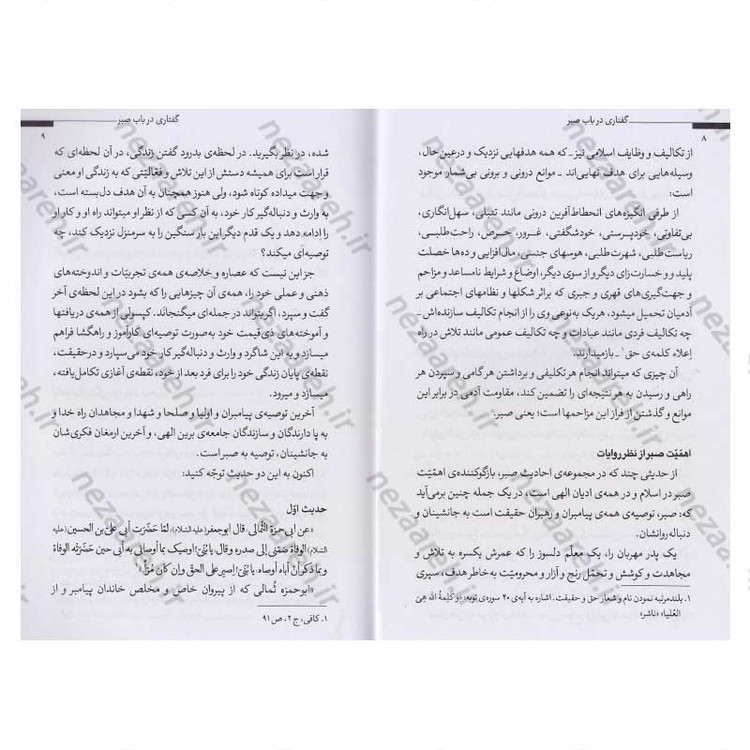 گفتاری در باب صبر
۸
از تکالیف و وظایف اسلامی نیز ـ که همه هدفهایی نزدیک و درعین‌حال،
وسیله‌هایی برای هدف نهایی‌اند ـ موانع درونی و برونی بی‌شمار موجود
است:
از طرفی انگیزه‌های انحطاط‌آفرین درونی مانند تنبلی، سهل‌انگاری،
بی‌تفاوتی، خودپرستی، خودشگفتی، غرور، حرص، راحت‌طلبی،
ریاست طلبی، شهرت‌طلبی، هوسهای جنسی، مال‌افزایی و ده‌ها خصلت
پلید و و خسارت‌زای دیگر و از سوی دیگر، اوضاع و شرایط نامساعد و مزاحم
و جهت‌گیری‌های قهری و جبری که براثر شکلها و نظامهای اجتماعی بر
آدمیان تحمیل میشود، هر یک به‌نوعی وی را از انجام تکالیف سازنده‌اش ـ
چه تکالیف فردی مانند عبادات و چه تکالیف عمومی مانند تلاش در راه
اِعلاء کلمه‌ی حق۱ ـ بازمیدارند.
آن چیزی که میتواند انجام هر تکلیفی و برداشتن هر گامی و سپردن هر
راهی و رسیدن به هر نتیجه‌ای را تضمین کند، مقاومت آدمی در برابر این
موانع و گذشتن از فراز این مزاحمها است؛ یعنی صبر.
اهمّیّت صبر از نظر روایات
از حدیثی چند که در مجموعه‌ی احادیث صبر، بازگوکننده‌ی اهمّیّت
صبر در اسلام و در همه‌ی ادیان الهی است، در یک جمله چنین برمی‌آید
که: صبر، توصیه‌ی همه‌ی پیامبران و رهبران حقیقت است به جانشینان و
دنباله‌روانشان.
یک پدر مهربان را، یک معلّم دلسوز را که عمرش یکسره به تلاش و
مجاهدت و کوشش و تحمّل رنج و آزار و محرومیّت به خاطر هدف، سپری
۱. بلندمرتبه نمودن نام و شعار حق و حقیقت. اشاره به آیه‌ی ۴۰ سوره‌ی توبه: «وَ کَلِمَةُ اللهِ هِیَ
العُلیا» «ناشر»
گفتاری در باب صبر
۹
شده، در نظر بگیرید. در لحظه‌ی بدرود گفتن زندگی، در آن لحظه‌ای که
قرار است برای همیشه دستش از این تلاش و فعّالیّتی که به زندگی او معنا
و جهت میداده کوتاه شود، ولی هنوز همچنان به آن هدف دل‌بسته است،
به وارث و دنباله‌گیر کار خود، به آن کسی که از نظر او میتواند راه او و کار او
را ادامه دهد و یک قدم دیگر این بار سنگین را به سرمنزل نزدیک کند، چه
توصیه‌ای میکند؟
جز این نیست که عصاره و خلاصه‌ی همه‌ی تجربیّات و اندوخته‌های
ذهنی و عملی خود را، همه‌ی آن چیزهایی را که بشود در این لحظه‌ی آخر
گفت و سپرد، اگر بتواند در جمله‌ای میگنجاند. کپسولی از همه‌ی دریافتها
و آموخته‌های ذی‌قیمت خود به‌صورت توصیه‌ای کارآموز و راهگشا فراهم
میسازد و به این شاگرد و وارث و دنباله‌گیر کار خود می‌سپارد و درحقیقت،
نقطه‌ی پایان زندگی خود را برای فرد بعد از خود، نقطه‌ی آغازی تکامل‌یافته،
میسازد و میرود.
آخرین توصیه‌ی پیامبران و اولیا و صلحا و شهدا و مجاهدان راه خدا و
به پا دارندگان و سازندگان جامعه‌ی برین الهی، و آخرین ارمغان فکری‌شان
به جانشینان، توصیه به صبر است.
اکنون به این دو حدیث توجّه کنید:
حدیث اوّل
«عن ابی‌حمزة الثُّمالی، قال ابوجعفر(علیه السّلام): لَمّا حَضَرَت أبی علیَّ بن الحسین(علیه
السّلام) الوفاةُ ضَمَّنی إلی صدره و قال: یا بُنَیَّ! اوصیک بما أوصانی به أبی حین حَضَرَتهُ الوفاةُ
و بما ذَکَر أنَّ أباه أوصاه به: یا بُنَیَّ! اِصبِر علی الحقِّ و إن کان مُرّاً.»۱
«ابوحمزه ثُمالی که از پیروان خاص و مخلص خاندان پیامبر و از
۱. کافی، ج ۲، ص ۹۱
nezaareh.ir